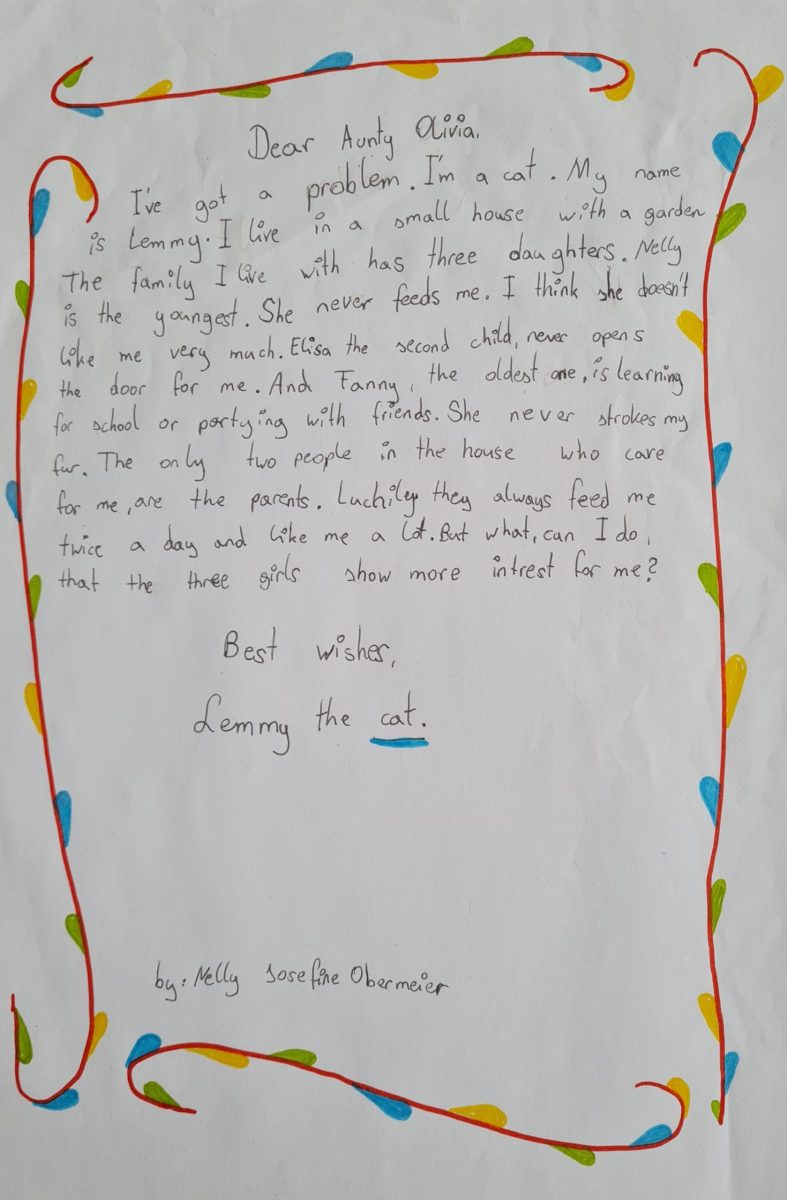 Dear Aunty Olivia.
I've got a problem. I'm a cat. My name
is Lemmy. I live in a small house with a garden
The family I live with has three daughters. Nelly
is the youngest. She never feeds me. I think she doesn't
like me very much. Elisa the second child, never opens
the door for me. And Fanny, the oldest one, is learning
for school or partying with friends. She never strokes my
fur. The only two people in the house who care
for me, are the parents. Luchiley they always feed me
twice a day and like me a lot. But what, can I do,
that the three girls show more intrest for me?
Best wishes,
Lemmy the cat.
by: Nelly Josefine Obermeier